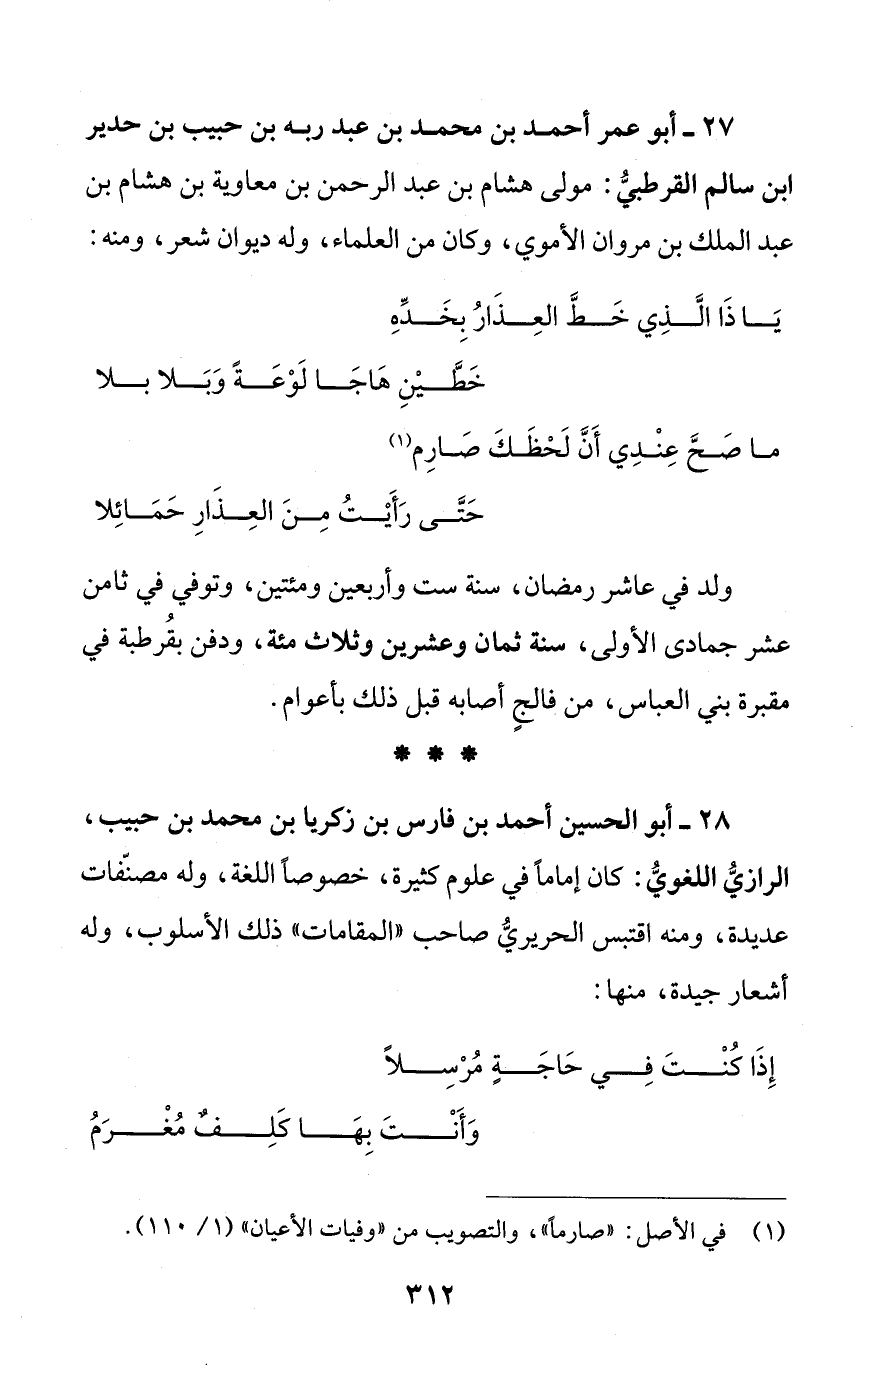 ٢٧ - أبو عمر أحمد بن محمد بن عبد ربه بن حبيب بن حدير
ابن سالم القرطبيُّ: مولى هشام بن عبد الرحمن بن معاوية بن هشام بن
عبد الملك بن مروان الأموي، وكان من العلماء، وله ديوان شعر، ومنه:
يَـا ذَا الَّـذِي خَـطَّ العِـذَارُ بِخَـدِّهِ
خَطَّـيْنِ هَاجَـا لَوْعَـةً وَبَـلا بـلا
مـا صَـحَّ عِنْـدِي أَنَّ لَحْظَـكَ صَـارِم(١)
حَتَّـى رَأَيْـتُ مِـنَ العِـذَارِ حَمَـائِلا
ولد في عاشر رمضان، سنة ست وأربعين ومئتين، وتوفي في ثامن
عشر جمادى الأولى، سنة ثمان وعشرين وثلاث مئة، ودفن بقُرطبة في
مقبرة بني العباس، من فالجٍ أصابه قبل ذلك بأعوام.
* * *
٢٨ - أبو الحسين أحمد بن فارس بن زكريا بن محمد بن حبيب،
الرازيُّ اللغويُّ: كان إماماً في علوم كثيرة، خصوصاً اللغة، وله مصنّفات
عديدة، ومنه اقتبس الحريريُّ صاحب «المقامات» ذلك الأسلوب، وله
أشعار جيدة، منها:
إِذَا كُنْـتَ فِـي حَاجَـةٍ مُرْسِـلاً
وَأَنْـتَ بِهَـا كَلِـفٌ مُغْـرَمُ
(١) في الأصل: «صارماً»، والتصويب من «وفيات الأعيان» (١/ ١١٠).
٣١٢